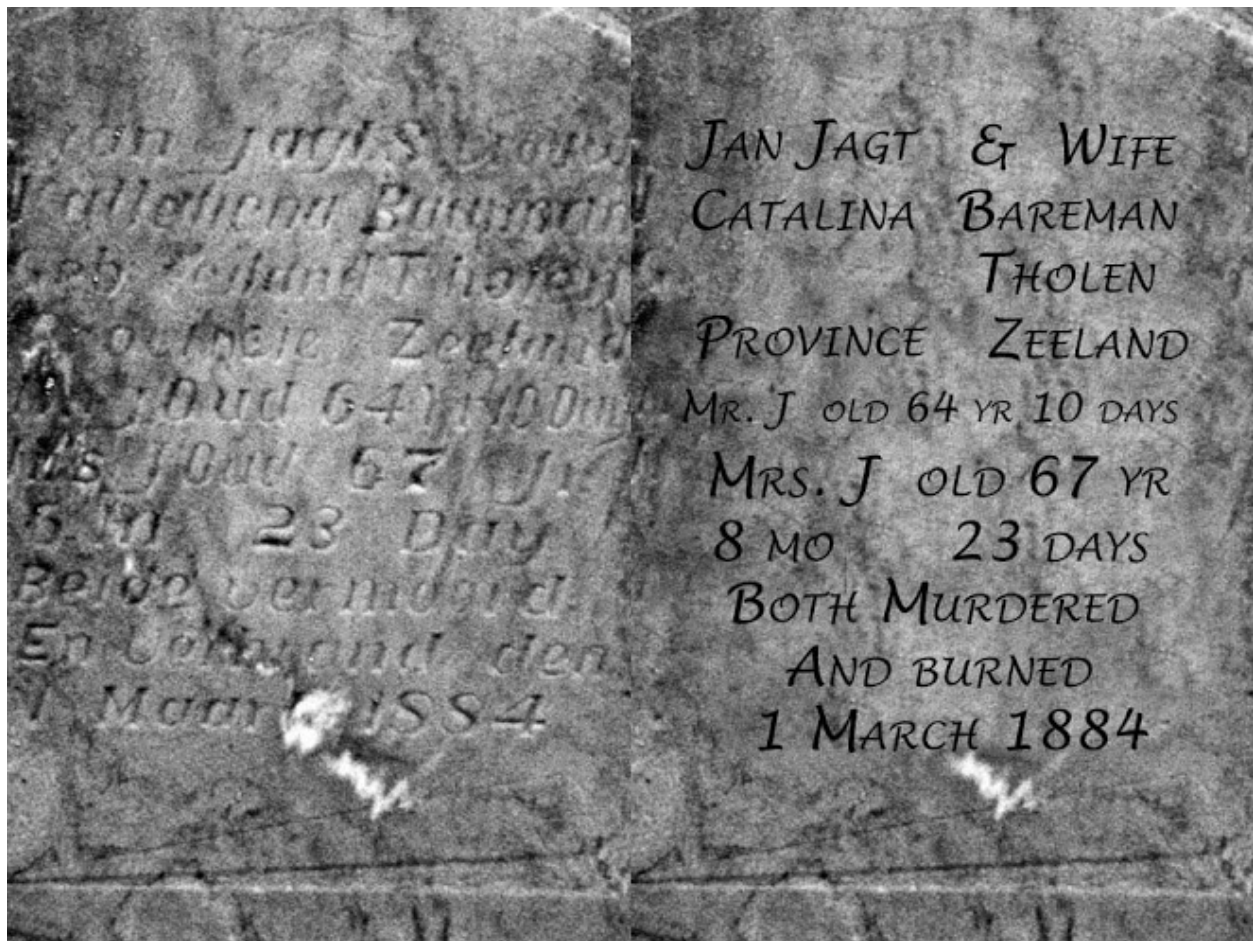 Jan Jagt &
Zeeland Tholen
Zeeland
J Oud 64 Yr 10 Da
Mrs J Oud 67 Jr
8 m 23 Day
Beide vermoord
En verbrand den
1 Maart 1884
JAN JAGT & WIFE
CATALINA BAREMAN
THOLEN
PROVINCE ZEELAND
MR. J OLD 64 YR 10 DAYS
MRS. J OLD 67 YR
8 MO 23 DAYS
BOTH MURDERED
AND BURNED
1 MARCH 1884